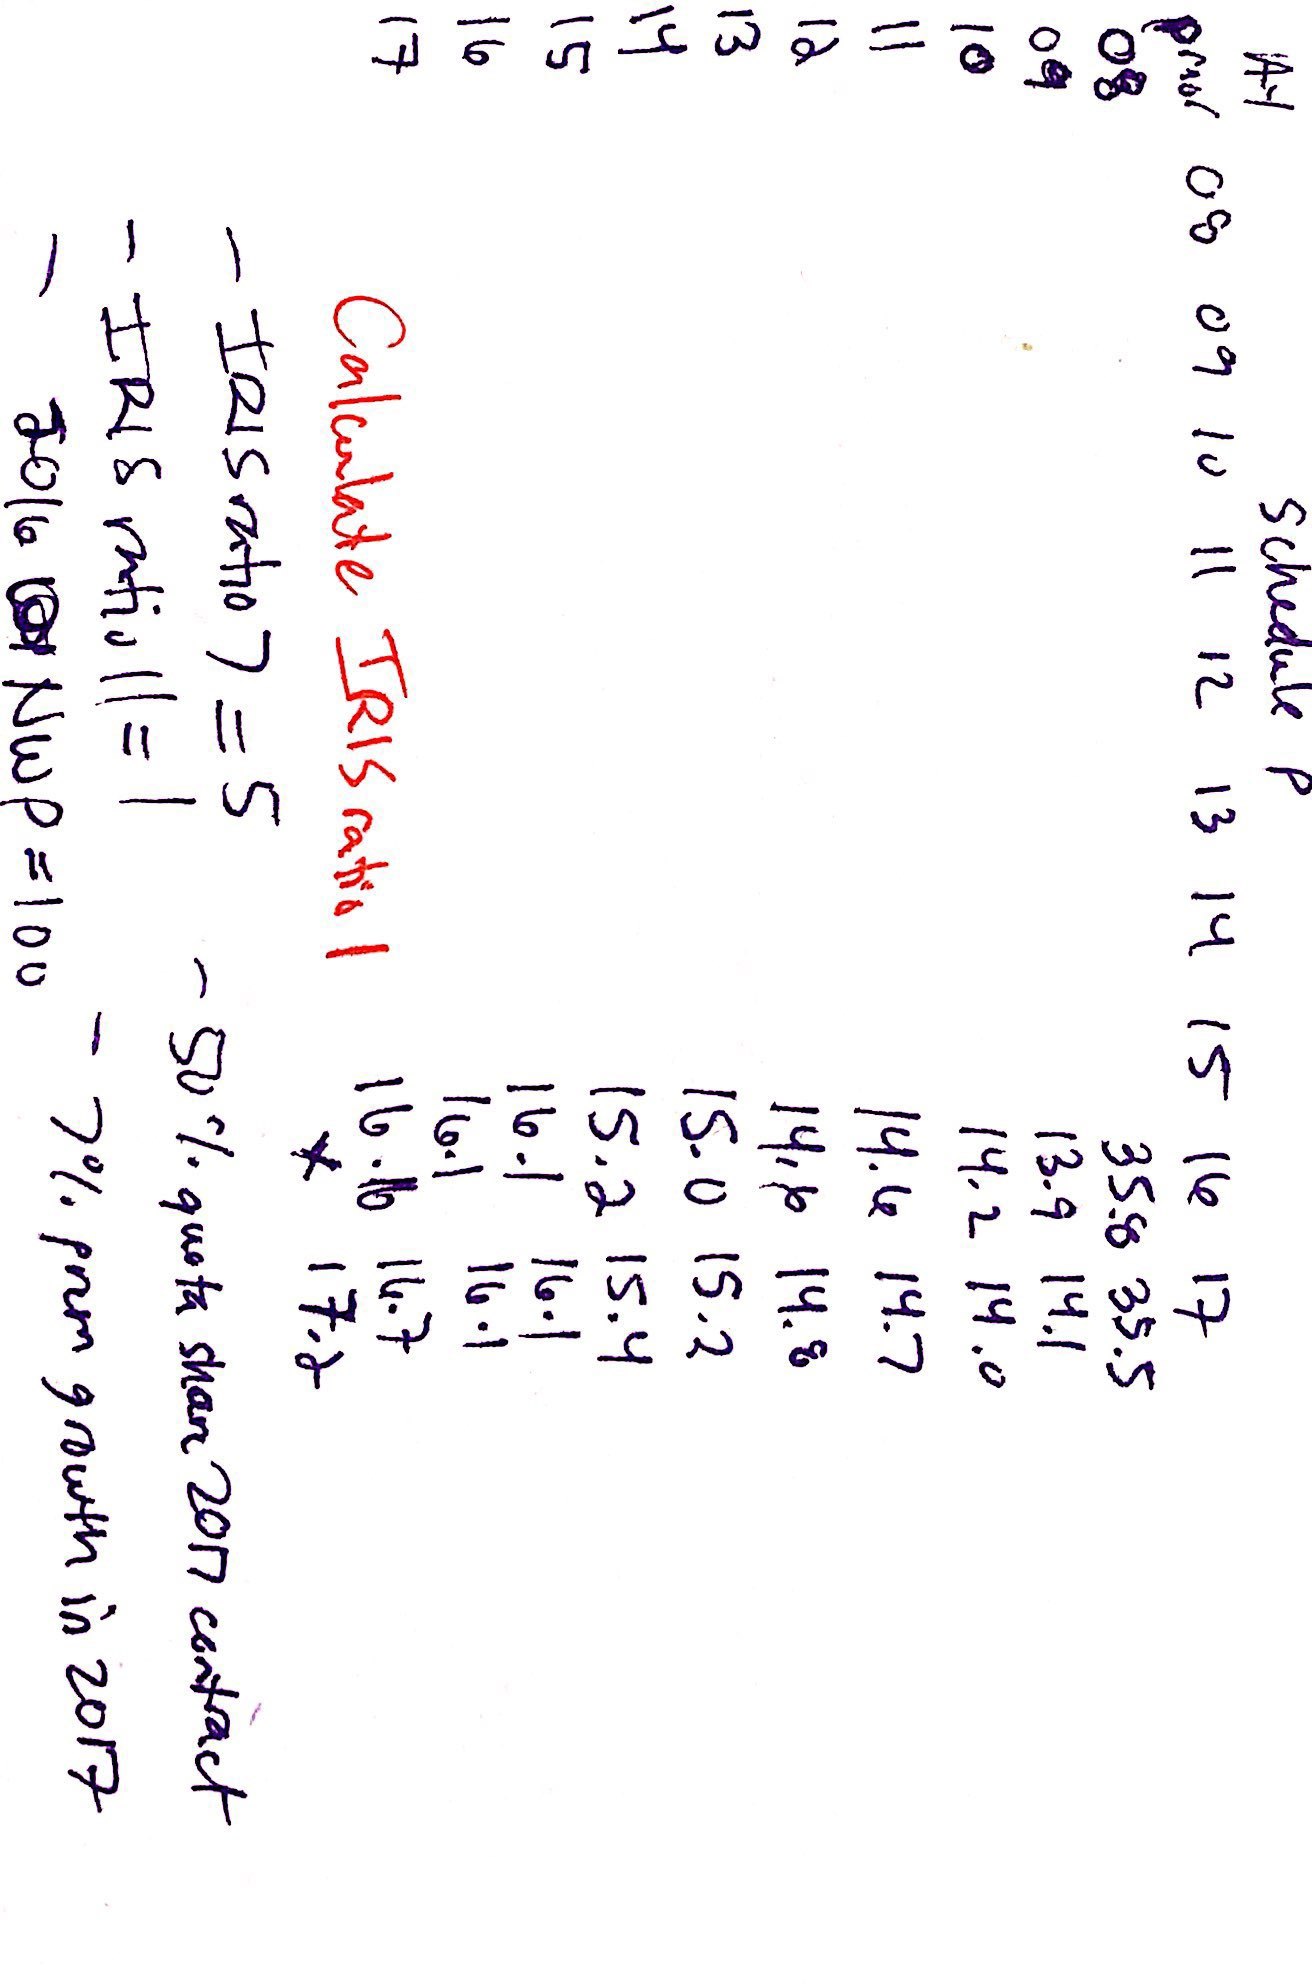 AY Schedule P
prior 08 09 10 11 12 13 14 15 16 17
08 35.8 35.5
09 13.9 14.1
10 14.2 14.0
11 14.6 14.7
12 14.6 14.8
13 15.0 15.2
14 15.2 15.4
15 16.1 16.1
16 16.1 16.1
17 16.7
* 17.2
Calculate IRIS ratio 1
- IRIS ratio 7 = 5
- 50% quota share 2017 contract
- IRIS ratio 11 = 1
- 7% prem growth in 2017
- 2016 NWP = 100